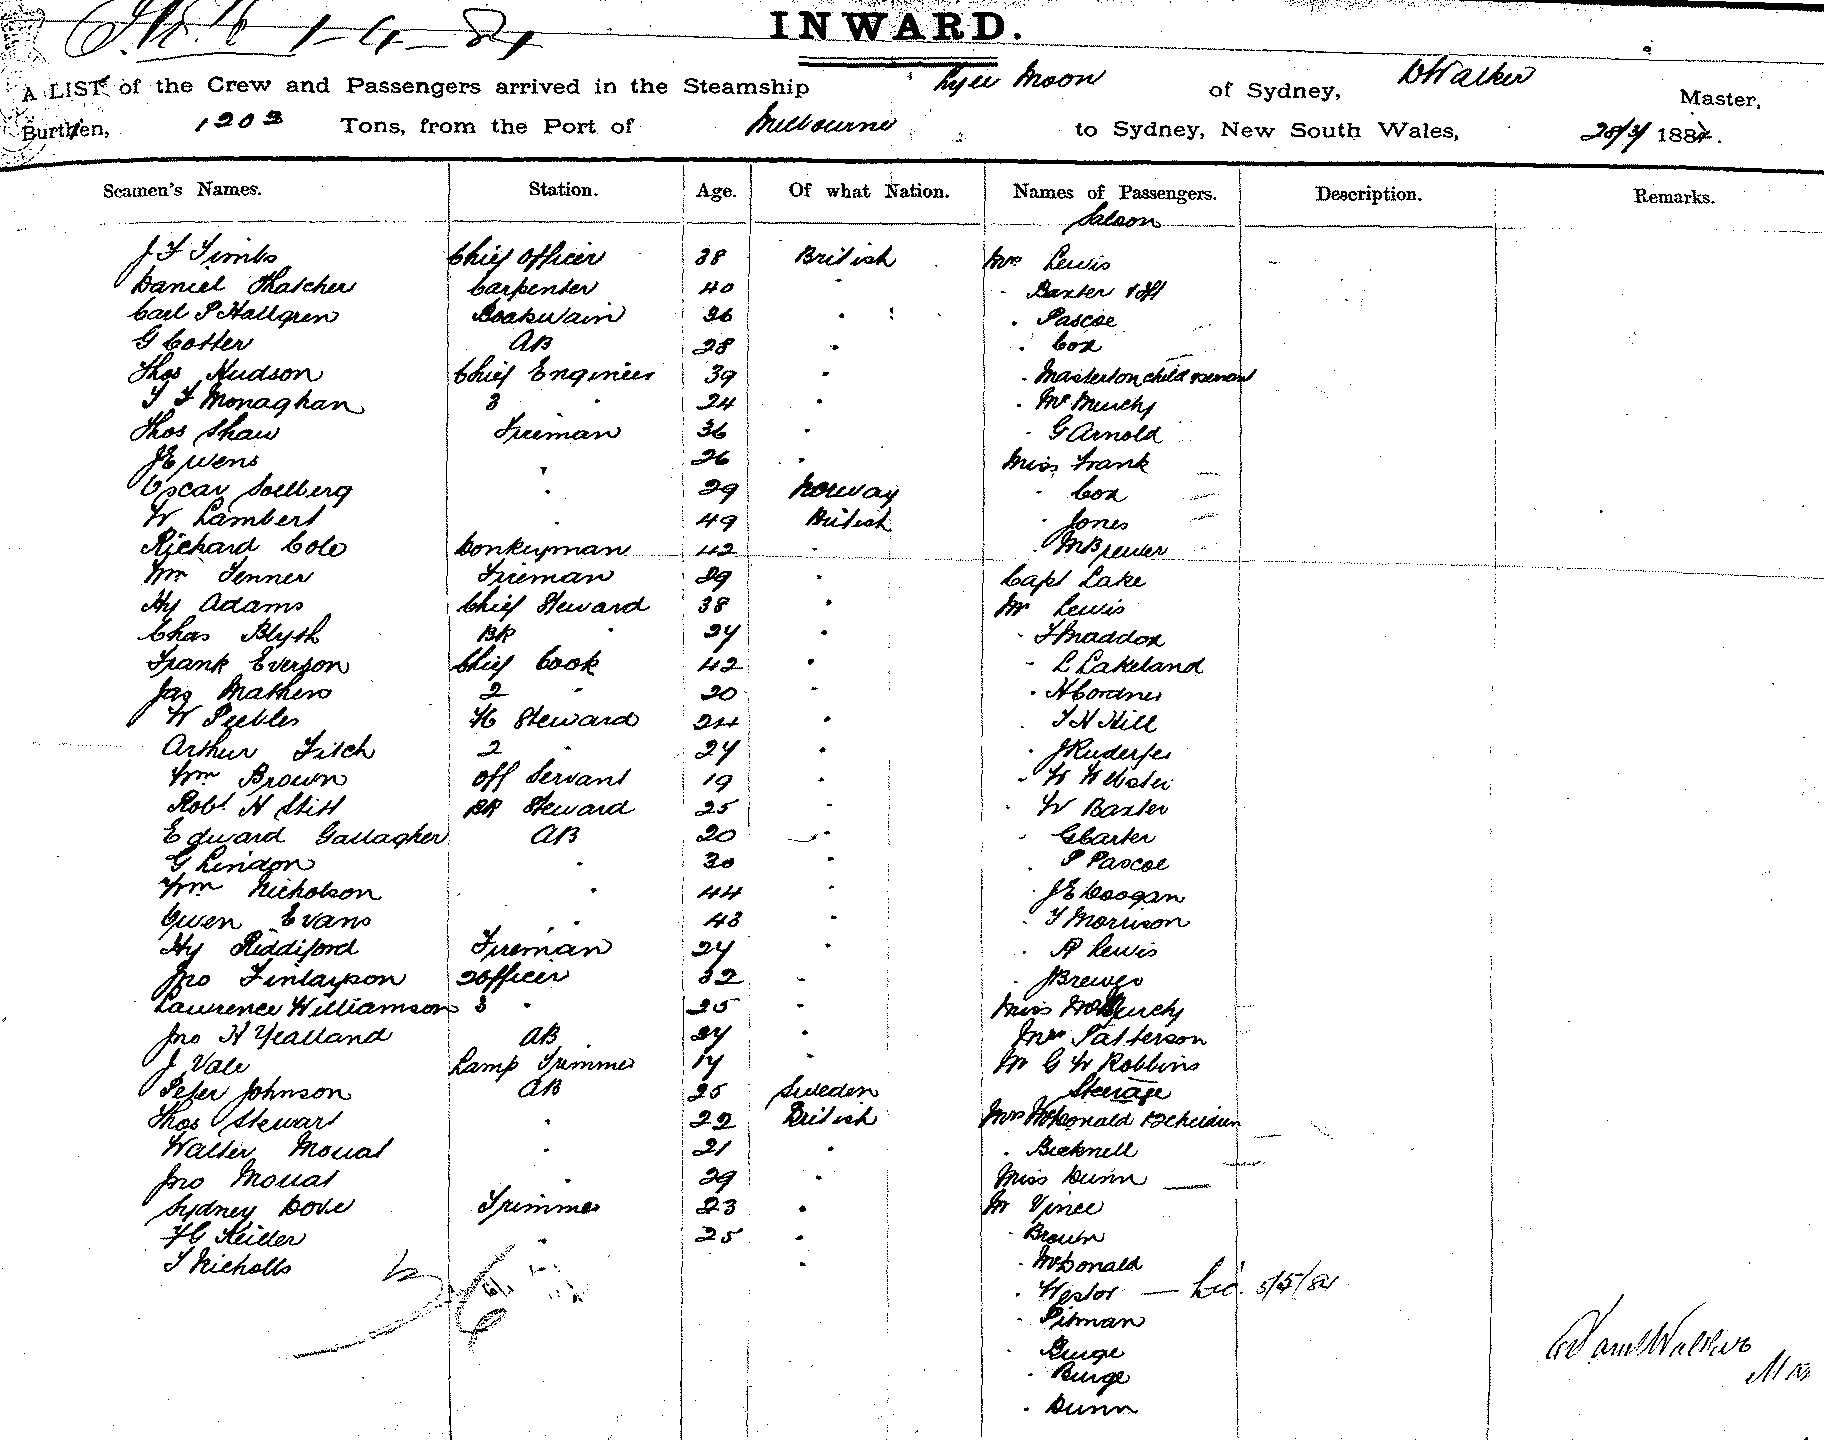 1-4-81
INWARD.
A LIST of the Crew and Passengers arrived in the Steamship Lyee Moon of Sydney, D Walker Master,
Burthen, 1202 Tons, from the Port of Melbourne to Sydney, New South Wales, 28/3/ 188
Seamen's Names. Station. Age. Of what Nation. Names of Passengers. Description. Remarks.
Saloon
J F Timbs Chief Officer 38 British Mrs Lewis
Daniel Thatcher Carpenter 40 " " Baxter
Carl P Hallgren Boatswain 26 " " Pascoe
G Cotter AB 28 " " Cox
Thos Hudson Chief Engineer 39 " " Masterton child & servant
T F Monaghan 3 " 24 " " McMurchy
Thos Shaw Fireman 36 " " G Arnold
J Ewens " 26 " Miss Frank
Oscar Solberg " 29 Norway " Cox
W Lambert " 49 British " Jones
Richard Cole Donkeyman 42 " " M Brewer
Wm Jenner Fireman 29 " Capt Lake
Hy Adams Chief Steward 38 " Mr Lewis
Chas Blyth BR " 27 " " F Maddox
Frank Everson Chief Cook 42 " " L Lakeland
Jas Mathers 2 " 20 " " H Cordner
W Peebles FC Steward 24 " " T H Hill
Arthur Fitch 2 " 27 " " J Ruderfer
Wm Brown Off Servant 19 " " W Webster
Robt H Stitt BR Steward 25 " " W Baxter
Edward Gallagher AB 20 " " G Carter
G Lindon " 30 " " P Pascoe
Wm Nicholson " 44 " " J E Coogan
Owen Evans " 43 " " T Morrison
Hy Riddiford Fireman 27 " " R Lewis
Jno Finlayson 2 Officer 32 " " J Brewer
Laurence Williamson 3 " 25 " Miss McMurchy
Jno H Yealland AB 27 " Mrs Patterson
J Vale Lamp Trimmer 17 " Mr G W Robbins
Peter Johnson AB 25 Sweden Steerage
Thos Stewart " 22 British Mrs McDonald & 2 children
Walter Mouat " 21 " " Bicknell
Jno Mouat " 29 " Miss Dunn
Sydney Dove Trimmer 23 " Mr Vince
Keiller " 25 " " Brown
T Nicholls " " McDonald
" Westor — Lic. 5/5/81
" Pitman
" Burge
" Burge
" Dunn
Walker